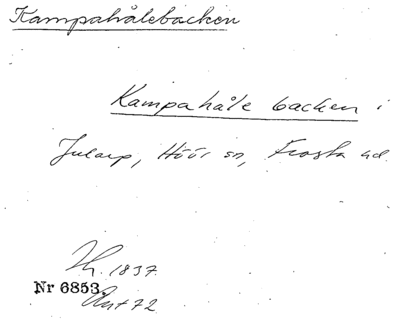 Kampahålebacken
Kampahåle backen i
Jularp, Höör sn, Frosta hd.
Th. 1837
Nr 6853.
Ant 72